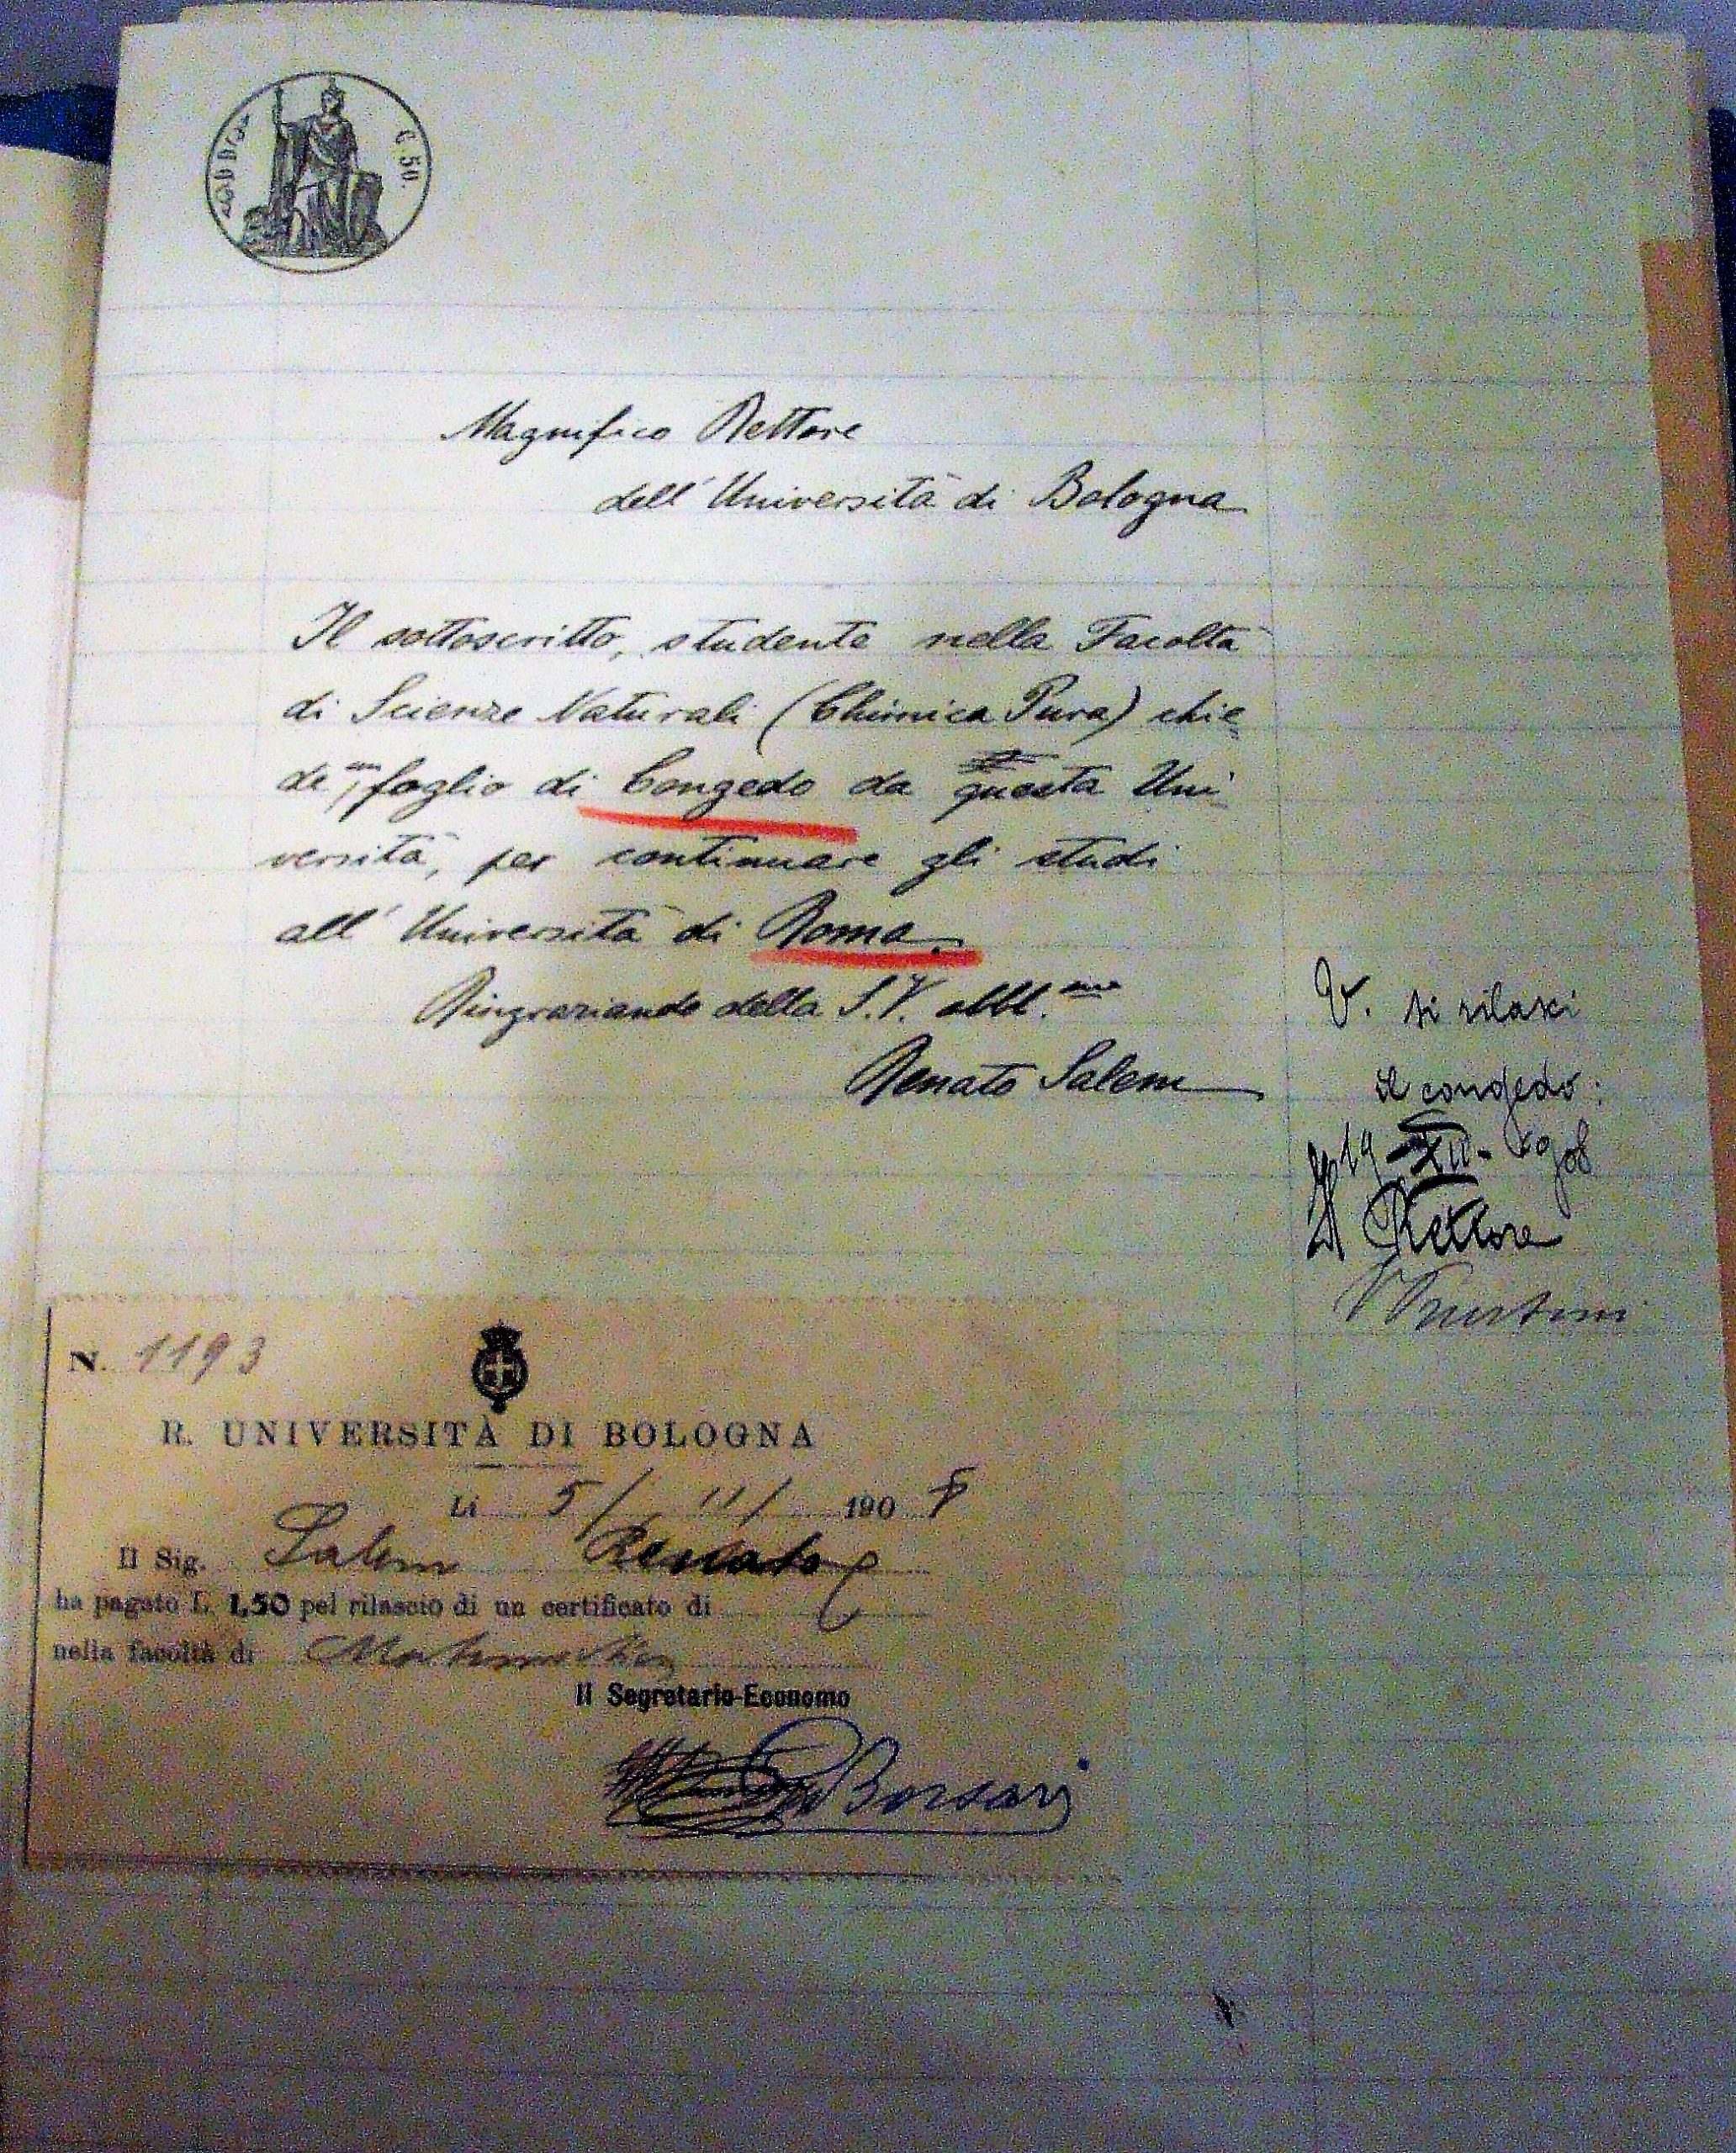 C. 50.
Magnifico Rettore
dell' Università di Bologna
Il sottoscritto, studente nella Facoltà
di Scienze Naturali (Chimica Pura) chie
de un foglio di Congedo da questa Uni
versità, per continuare gli studi
all' Università di Roma.
Ringraziando della S.V. obbl.mo
Renato Salem
V. si rilasci
il congedo:
19 - XII - 1908
Il Rettore
N. 1193
R. UNIVERSITÀ DI BOLOGNA
Li 5/ 11/ 190 8
Il Sig. Salem Renato
ha pagato L. 1,50 pel rilascio di un certificato di
nella facoltà di Matematica
Il Segretario-Economo
Borsari